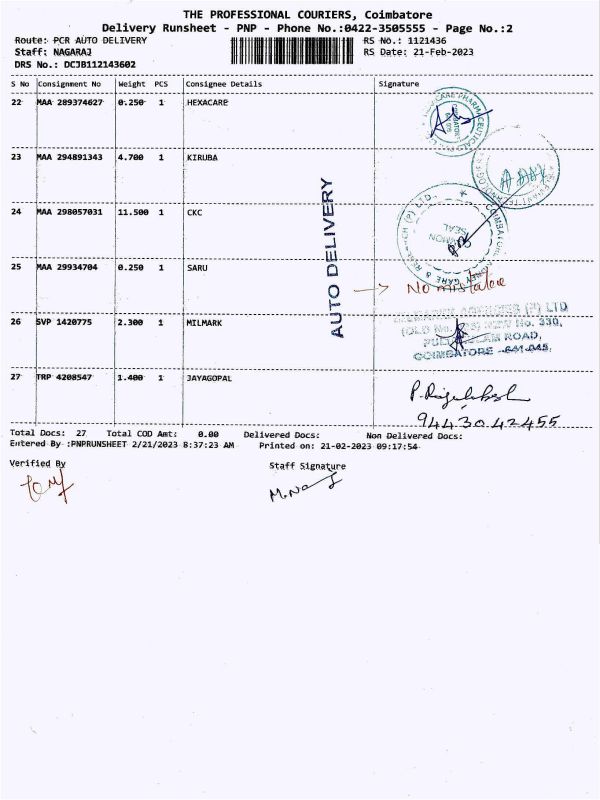 THE PROFESSIONAL COURIERS, Coimbatore
Delivery Runsheet - PNP - Phone No.:0422-3505555 - Page No.:2
Route: PCR AUTO DELIVERY RS No.: 1121436
Staff: NAGARAJ RS Date: 21-Feb-2023
DRS No.: DCJB112143602
S No Consignment No Weight PCS Consignee Details Signature
22 MAA 289374627 0.250 1 HEXACARE
23 MAA 294891343 4.700 1 KIRUBA
24 MAA 298057031 11.500 1 CKC
25 MAA 29934704 0.250 1 SARU
No mistake
26 SVP 1420775 2.300 1 MILMARK
AGENCIES (P) LTD
(OLD No. NEW No. 330,
ROAD,
COIMBATORE - 641 045.
27 TRP 4208547 1.400 1 JAYAGOPAL
94430 42455
AUTO DELIVERY
Total Docs: 27 Total COD Amt: 0.00 Delivered Docs: Non Delivered Docs:
Entered By :PNPRUNSHEET 2/21/2023 8:37:23 AM Printed on: 21-02-2023 09:17:54
Verified By Staff Signature